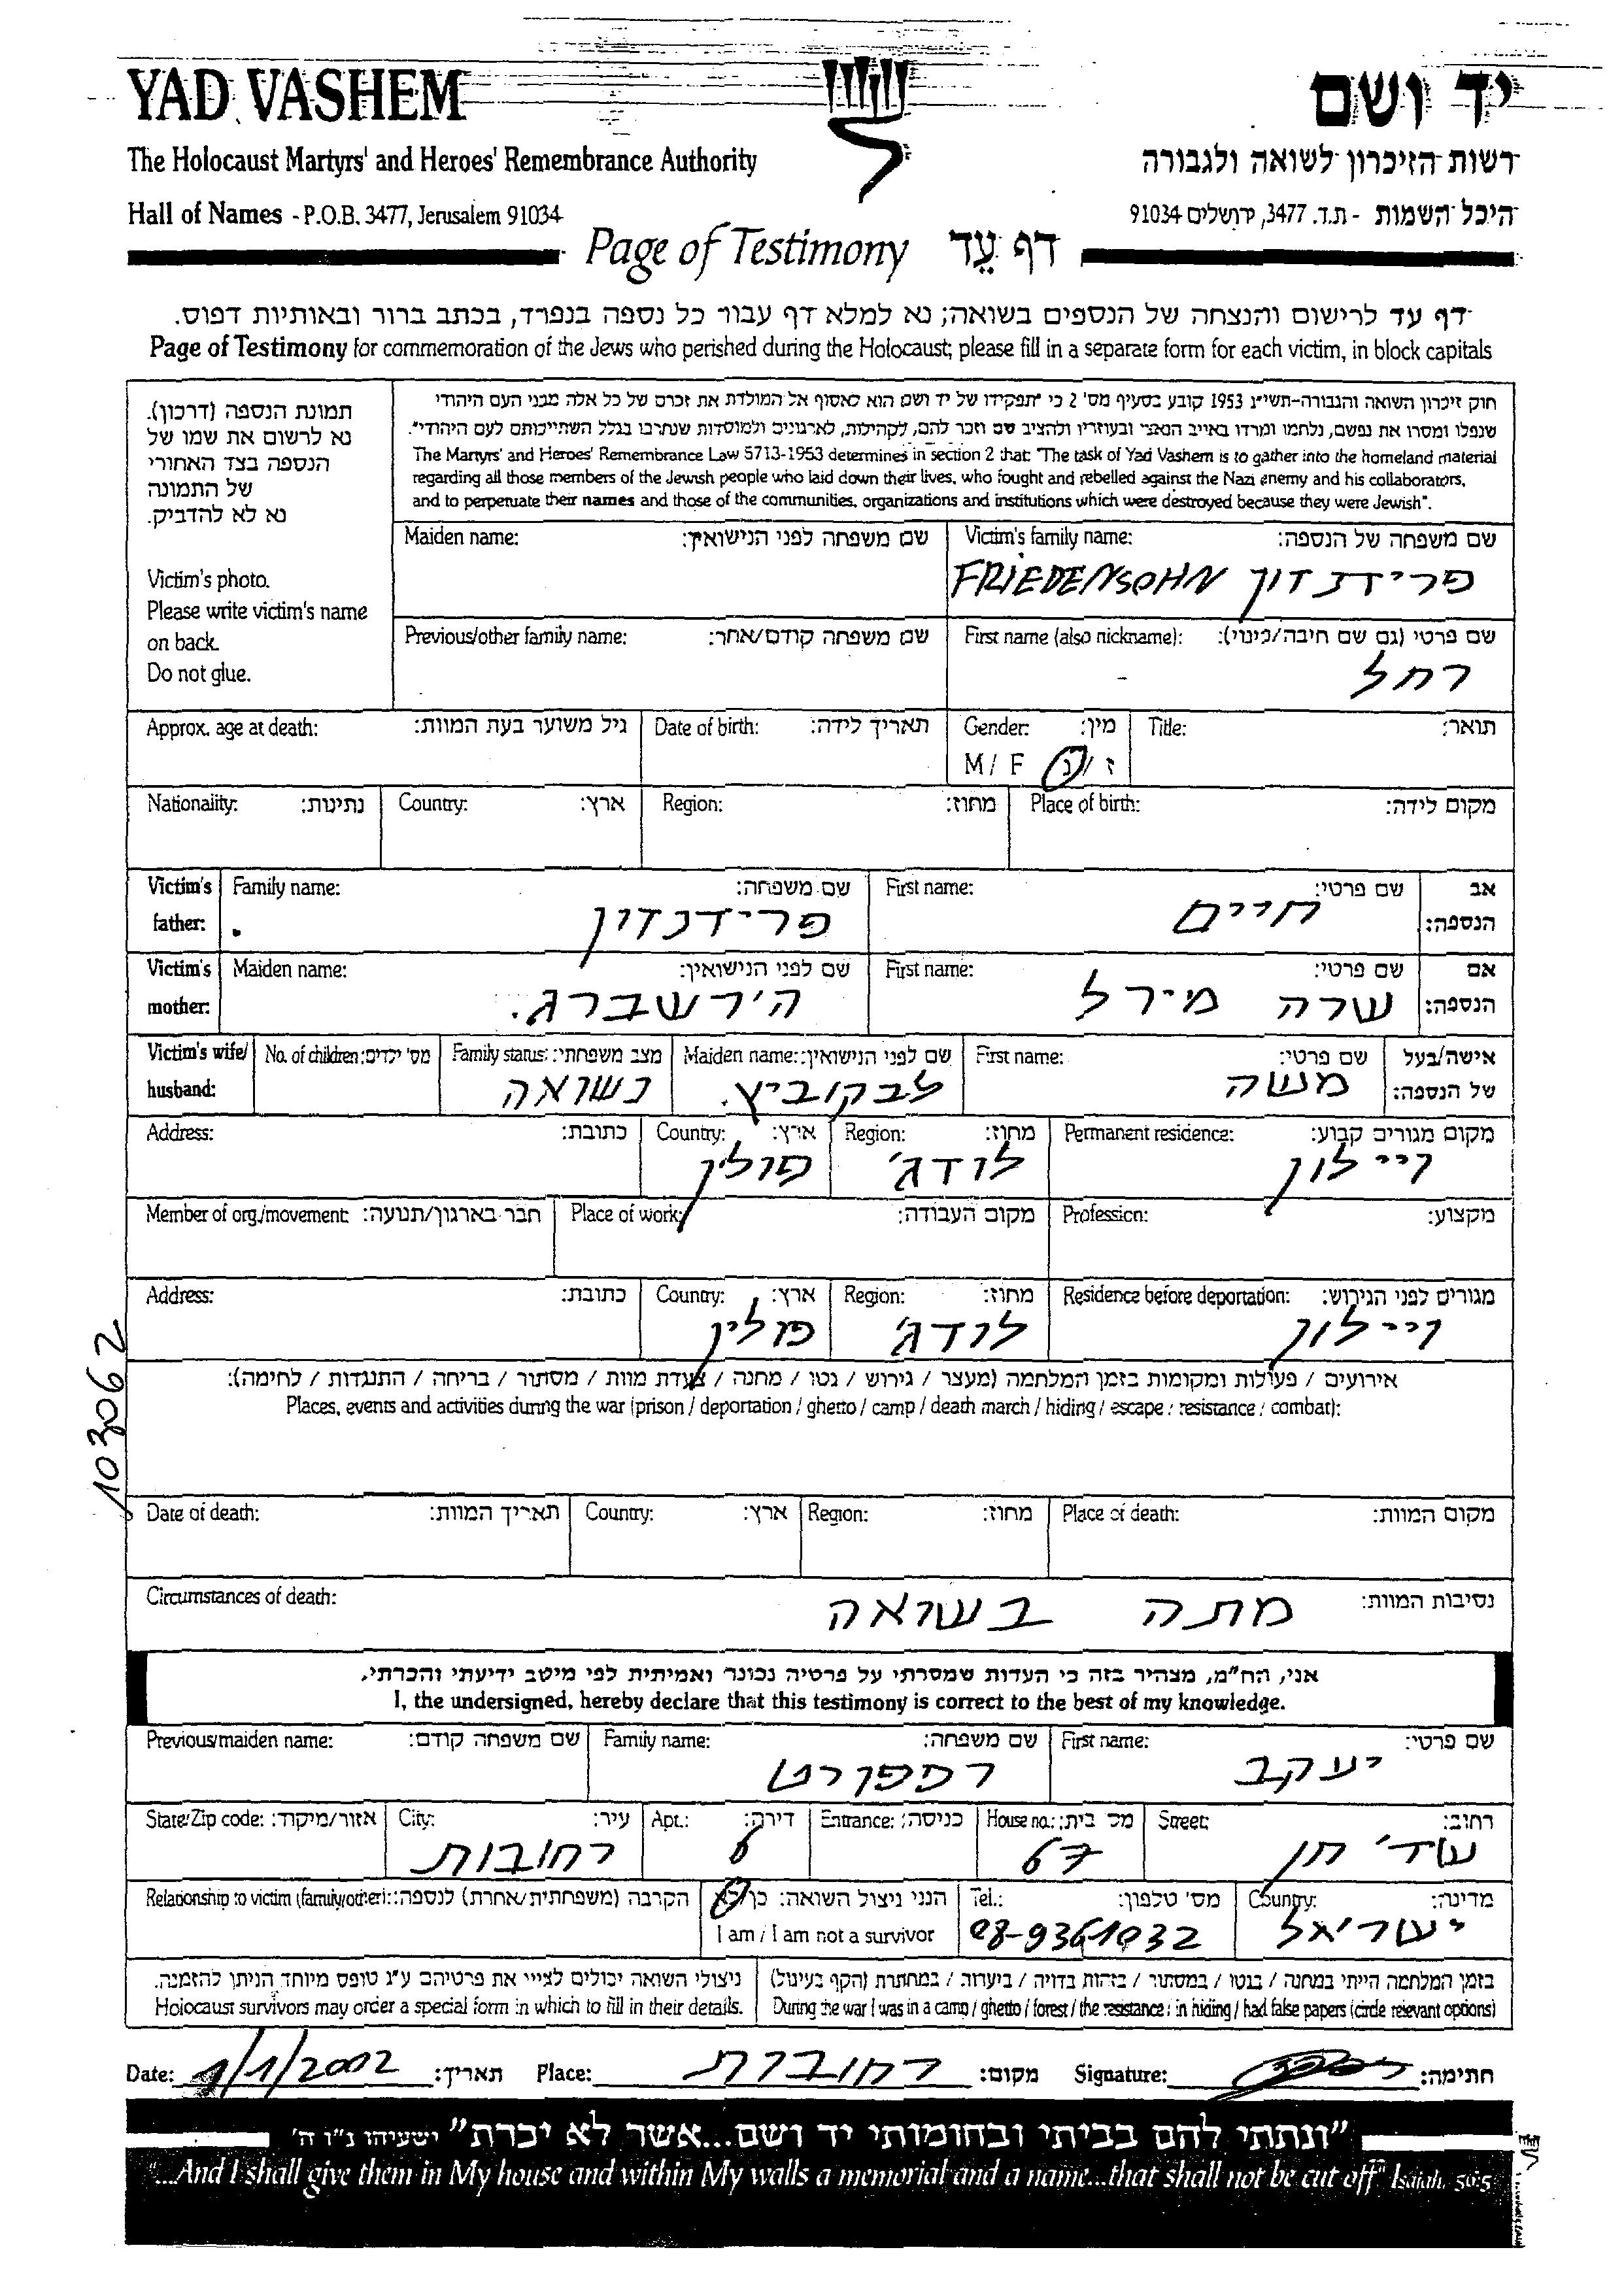 YAD VASHEM
יד ושם
The Holocaust Martyrs' and Heroes' Remembrance Authority
רשות הזיכרון לשואה ולגבורה
Hall of Names - P.O.B. 3477, Jerusalem 91034
היכל השמות - ת.ד. 3477, ירושלים 91034
Page of Testimony דף עֵד
דף עד לרישום והנצחה של הנספים בשואה; נא למלא דף עבור כל נספה בנפרד, בכתב ברור ובאותיות דפוס.
Page of Testimony for commemoration of the Jews who perished during the Holocaust; please fill in a separate form for each victim, in block capitals
תמונת הנספה (דרכון).
נא לרשום את שמו של
הנספה בצד האחורי
של התמונה
נא לא להדביק.
Victim's photo.
Please write victim's name
on back.
Do not glue.
חוק זיכרון השואה והגבורה-תשי"ג 1953 קובע בסעיף מס' 2 כי "תפקידו של יד ושם הוא לאסוף אל המולדת את זכרם של כל אלה מבני העם היהודי
שנפלו ומסרו את נפשם, נלחמו ומרדו באויב הנאצי ובעוזריו ולהציב שם וזכר להם, לקהילות, לארגונים ולמוסדות שנחרבו בגלל השתייכותם לעם היהודי".
The Martyrs' and Heroes' Remembrance Law 5713-1953 determines in section 2 that: "The task of Yad Vashem is to gather into the homeland material
regarding all those members of the Jewish people who laid down their lives, who fought and rebelled against the Nazi enemy and his collaborators,
and to perpetuate their names and those of the communities, organizations and institutions which were destroyed because they were Jewish".
Maiden name: שם משפחה לפני הנישואין:
Victim's family name: שם משפחה של הנספה:
FRIEDENSOHN פרידנזון
Previous/other family name: שם משפחה קודם/אחר:
First name (also nickname): שם פרטי (גם שם חיבה/כינוי):
רחל
Approx. age at death: גיל משוער בעת המוות:
Date of birth: תאריך לידה:
Gender: מין:
M / F ז / נ
Title: תואר:
Nationality: נתינות:
Country: ארץ:
Region: מחוז:
Place of birth: מקום לידה:
Victim's father: אב הנספה:
Family name: שם משפחה:
פרידנזון
First name: שם פרטי:
חיים
Victim's mother: אם הנספה:
Maiden name: שם לפני הנישואין:
הירשברג.
First name: שם פרטי:
שרה מירל
Victim's wife/ husband: אישה/בעל של הנספה:
No. of children: מס' ילדים:
Family status: מצב משפחתי:
נשואה
Maiden name: שם לפני הנישואין:
לבקוביץ.
First name: שם פרטי:
משה
Address: כתובת:
Country: ארץ:
פולין
Region: מחוז:
לודג'
Permanent residence: מקום מגורים קבוע:
ויילון
Member of org./movement: חבר בארגון/תנועה:
Place of work: מקום העבודה:
Profession: מקצוע:
Address: כתובת:
Country: ארץ:
פולין
Region: מחוז:
לודג'
Residence before deportation: מגורים לפני הגירוש:
ויילון
אירועים / פעולות ומקומות בזמן המלחמה (מעצר / גירוש / גטו / מחנה / צעדת מוות / מסתור / בריחה / התנגדות / לחימה):
Places, events and activities during the war (prison / deportation / ghetto / camp / death march / hiding / escape / resistance / combat):
103062
Date of death: תאריך המוות:
Country: ארץ:
Region: מחוז:
Place of death: מקום המוות:
Circumstances of death: נסיבות המוות:
מתה בשואה
אני, הח"מ, מצהיר בזה כי העדות שמסרתי על פרטיה נכונה ואמיתית לפי מיטב ידיעתי והכרתי.
I, the undersigned, hereby declare that this testimony is correct to the best of my knowledge.
Previous/maiden name: שם משפחה קודם:
Family name: שם משפחה:
רפפורט
First name: שם פרטי:
יעקב
State/Zip code: אזור/מיקוד:
City: עיר:
רחובות
Apt.: דירה:
6
Entrance: כניסה:
House no.: מס' בית:
67
Street: רחוב:
שד' חן
Relationship to victim (family/other): הקרבה (משפחתית/אחרת) לנספה:
הנני ניצול השואה: כן/לא
I am / I am not a survivor
Tel.: מס' טלפון:
08-9361032
Country: מדינה:
ישראל
ניצולי השואה יכולים לציין את פרטיהם ע"ג טופס מיוחד הניתן להזמנה.
Holocaust survivors may order a special form in which to fill in their details.
בזמן המלחמה הייתי במחנה / בגטו / במסתור / בזהות בדויה / ביערות / במחתרת (הקף בעיגול)
During the war I was in a camp / ghetto / forest / the resistance / in hiding / had false papers (circle relevant options)
Date: 1/1/2002 תאריך:
Place: רחובות מקום:
Signature: חתימה:
"ונתתי להם בביתי ובחומותי יד ושם...אשר לא יכרת" ישעיהו נ"ו ה'
"...And I shall give them in My house and within My walls a memorial and a name...that shall not be cut off" Isaiah, 56:5